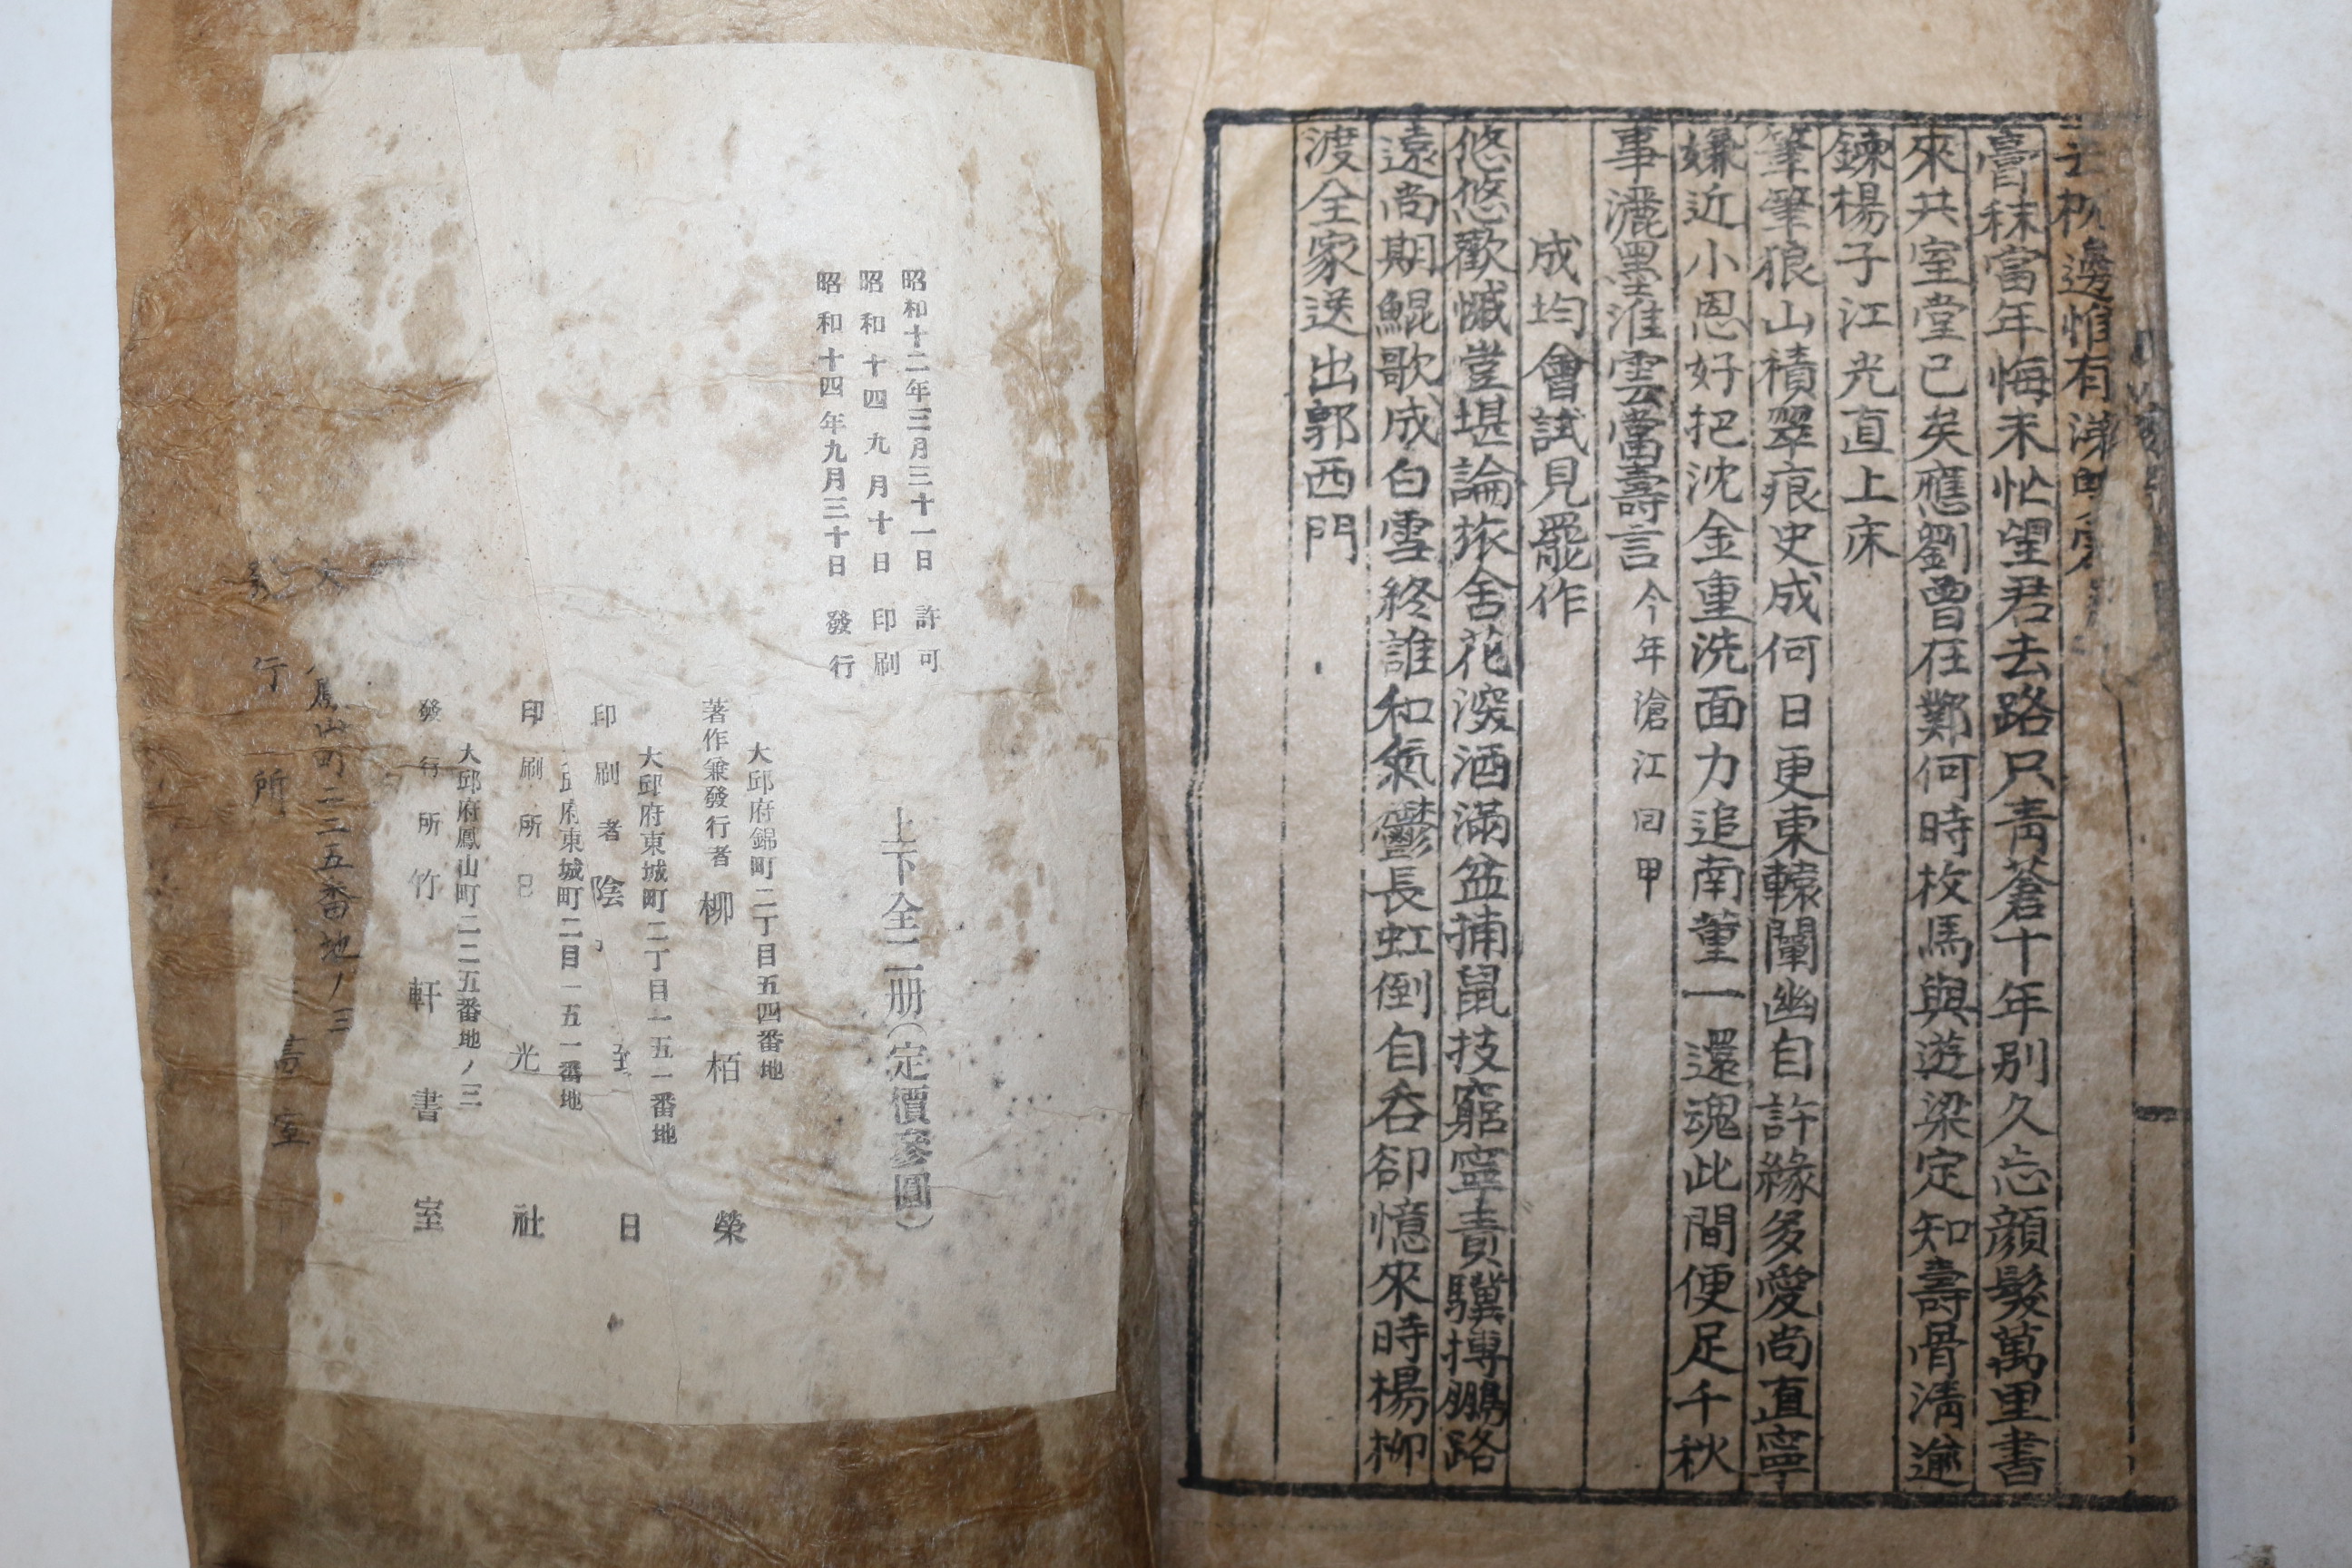 邊惟有
當年悔未忙望君去路只靑蒼十年別久忘顔髮萬里書
來共室堂己矣應劉曾在鄴何時枚馬與遊梁定知壽骨淸
鍊楊子江光直上床
肇肇狼山積翠痕史成何日更東轅闡幽自許緣多愛尚直寧
嫌近小恩好把沈金重洗面力追南董一還魂此間便足千秋
事灑墨淮雲當壽言今年滄江回甲
成均會試見罷作
悠悠歡慽豈堪論旅舍花深酒滿盆捕鼠技窮寧責驥摶鵬路
遠尚期鯤歌成白雪終誰和氣鬱長虹倒自呑卻憶來時楊柳
渡全家送出郭西門
昭和十二年三月三十一日 許可
昭和十四九月十日 印刷
昭和十四年九月三十日 發行
上下全二册(定價參圓)
大邱府錦町二丁目五四番地
著作兼發行者 柳栢榮
大邱府東城町二丁目一五一番地
印刷者 陰 日
邱府東城町二目一五一番地
印刷所 光社
大邱府鳳山町二二五番地ノ三
發行所 竹軒書室
鳳山町二二五番地ノ三
行所 書室